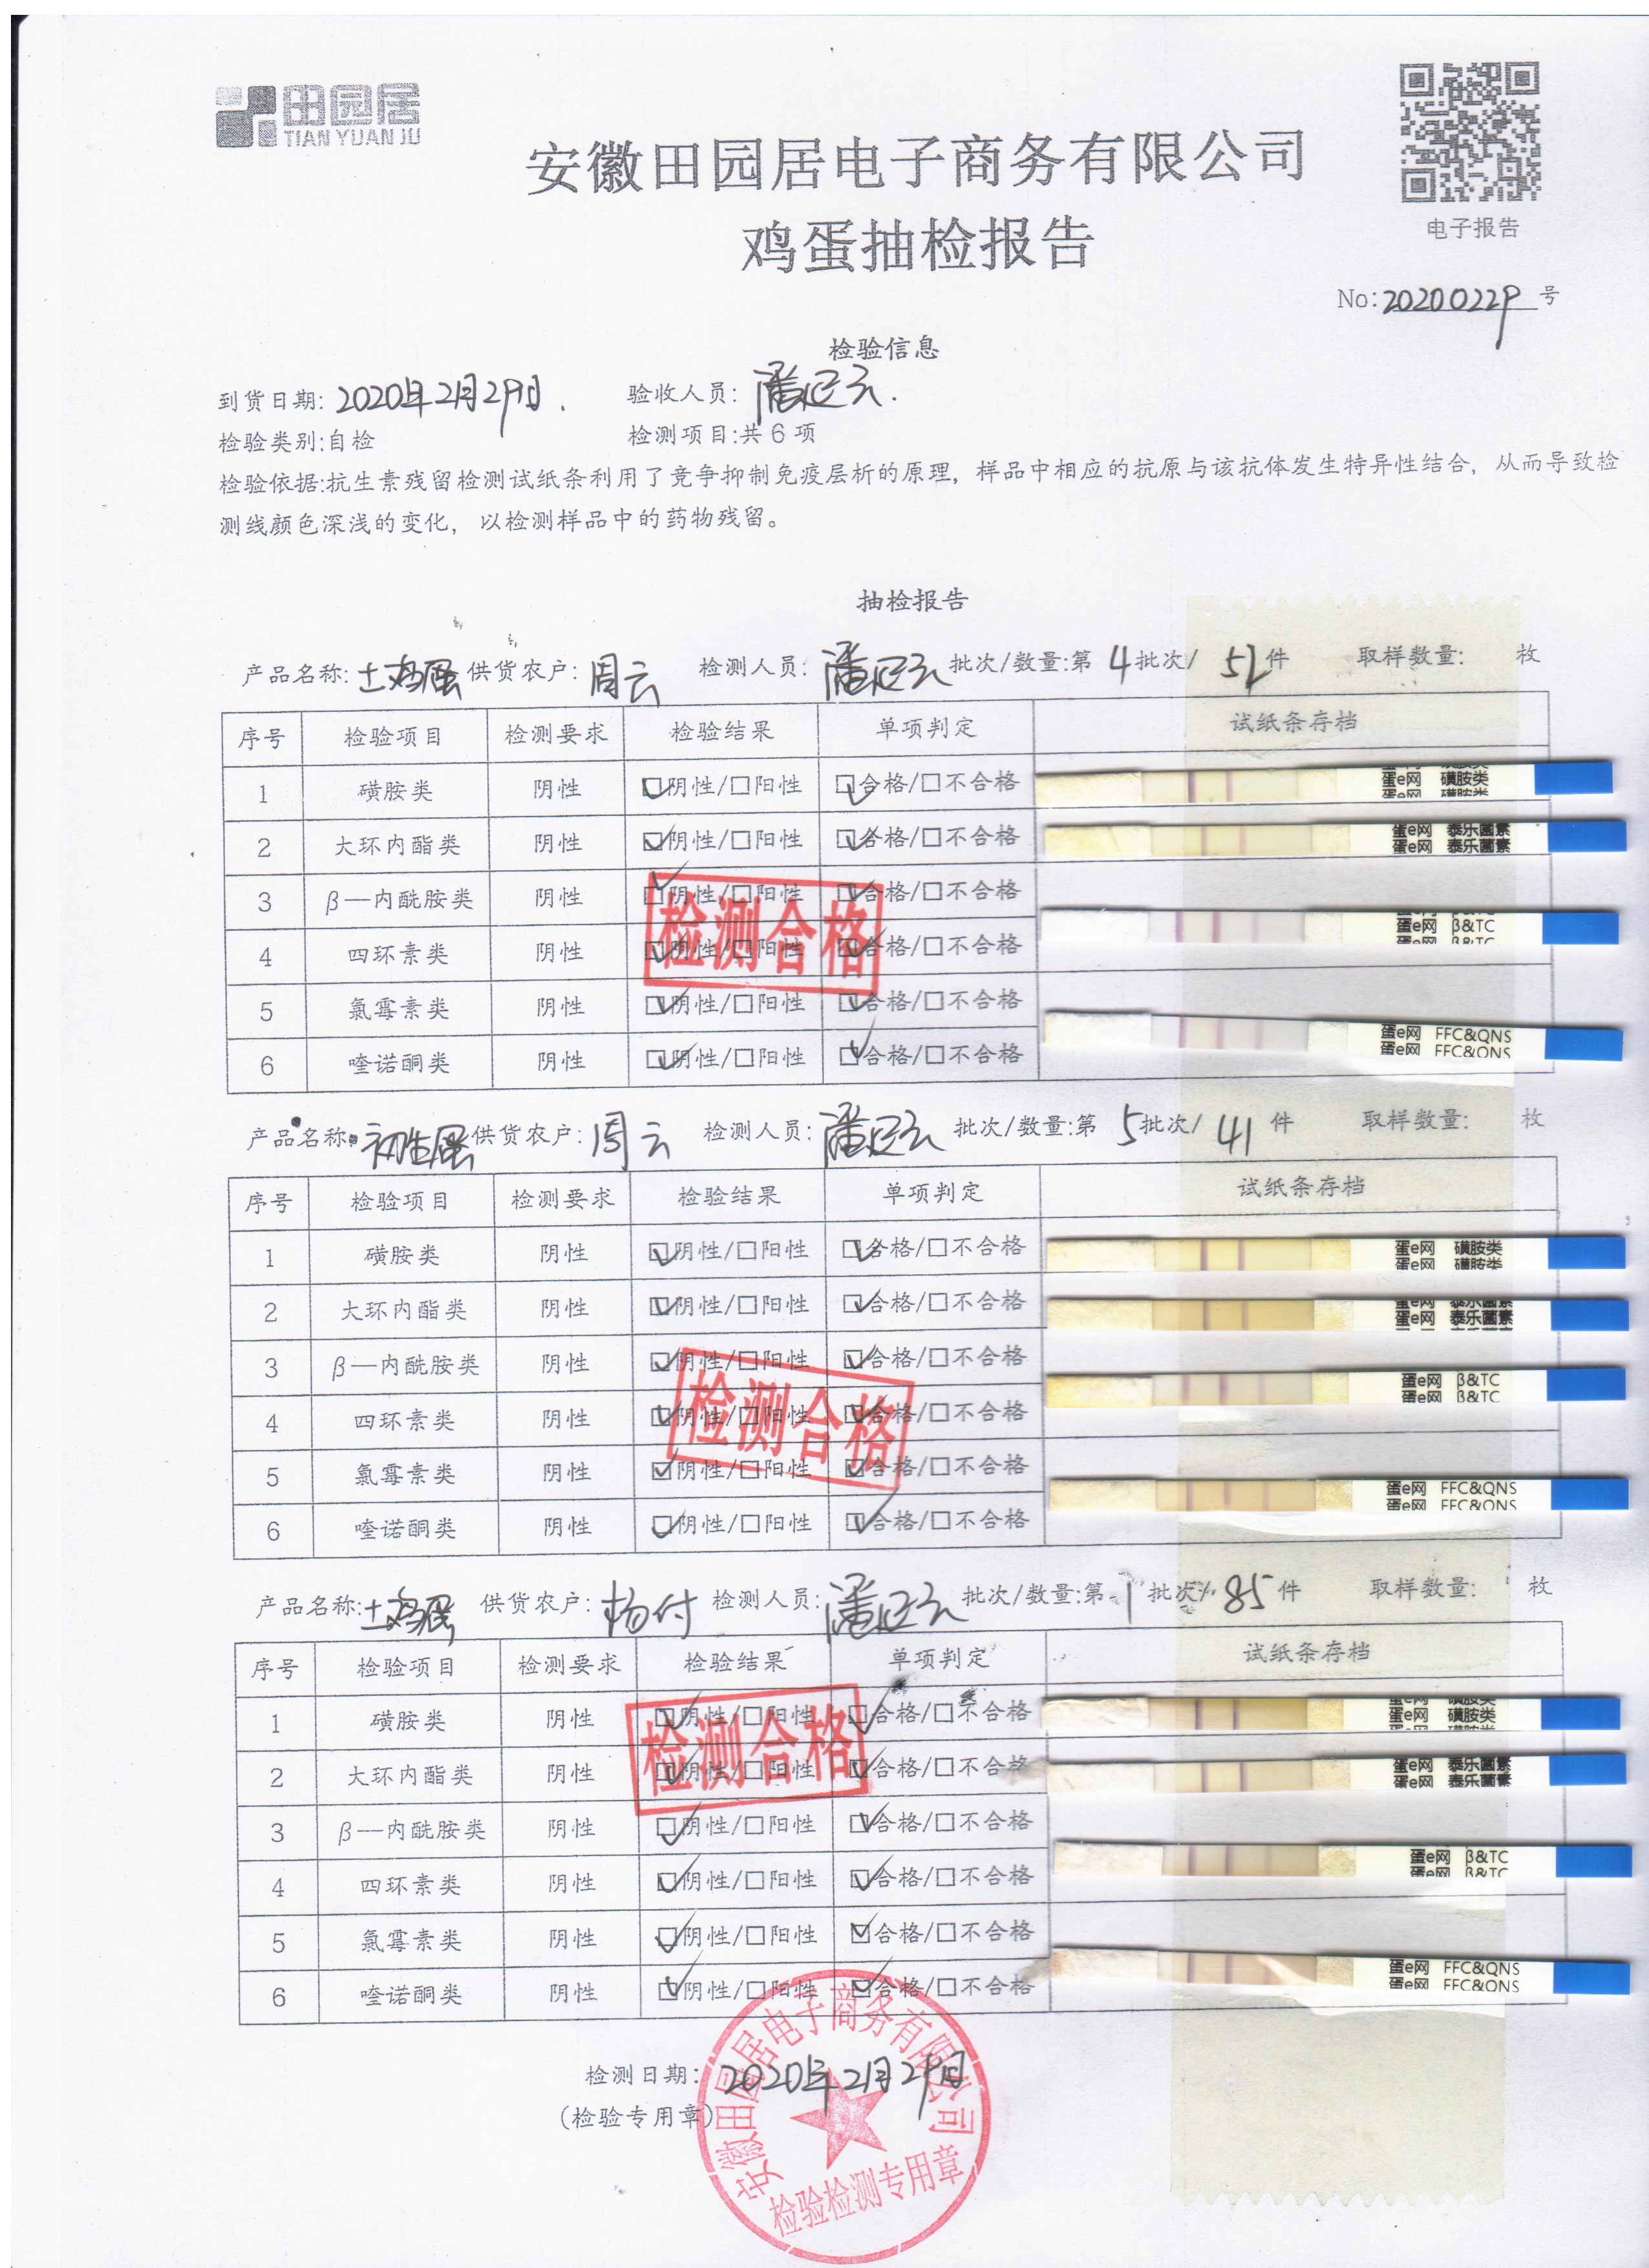 田园居
TIAN YUAN JU
安徽田园居电子商务有限公司
鸡蛋抽检报告
电子报告
No:20200229号
检验信息
到货日期: 2020年2月29日. 验收人员: 潘
检验类别:自检 检测项目:共6项
检验依据:抗生素残留检测试纸条利用了竞争抑制免疫层析的原理, 样品中相应的抗原与该抗体发生特异性结合, 从而导致检
测线颜色深浅的变化, 以检测样品中的药物残留。
抽检报告
产品名称: 土鸡蛋 供货农户: 周云 检测人员: 潘 批次/数量:第4批次/ 52件 取样数量: 枚
序号 检验项目 检测要求 检验结果 单项判定 试纸条存档
1 磺胺类 阴性 ☑阴性/□阳性 ☑合格/□不合格 蛋e网 磺胺类
蛋e网 磺胺类
2 大环内酯类 阴性 ☑阴性/□阳性 ☑合格/□不合格 蛋e网 泰乐菌素
蛋e网 泰乐菌素
3 β—内酰胺类 阴性 ☑阴性/□阳性 ☑合格/□不合格
4 四环素类 阴性 ☑阴性/□阳性 ☑合格/□不合格 蛋e网 β&TC
蛋e网 β&TC
5 氯霉素类 阴性 ☑阴性/□阳性 ☑合格/□不合格
6 喹诺酮类 阴性 ☑阴性/□阳性 ☑合格/□不合格 蛋e网 FFC&QNS
蛋e网 FFC&QNS
检测合格
产品名称: 初生蛋 供货农户: 周云 检测人员: 潘 批次/数量:第5批次/ 41件 取样数量: 枚
序号 检验项目 检测要求 检验结果 单项判定 试纸条存档
1 磺胺类 阴性 ☑阴性/□阳性 ☑合格/□不合格 蛋e网 磺胺类
蛋e网 磺胺类
2 大环内酯类 阴性 ☑阴性/□阳性 ☑合格/□不合格 蛋e网 泰乐菌素
蛋e网 泰乐菌素
3 β—内酰胺类 阴性 ☑阴性/□阳性 ☑合格/□不合格 蛋e网 β&TC
蛋e网 β&TC
4 四环素类 阴性 ☑阴性/□阳性 ☑合格/□不合格
5 氯霉素类 阴性 ☑阴性/□阳性 ☑合格/□不合格 蛋e网 FFC&QNS
蛋e网 FFC&QNS
6 喹诺酮类 阴性 ☑阴性/□阳性 ☑合格/□不合格
检测合格
产品名称: 土鸡蛋 供货农户: 杨付 检测人员: 潘 批次/数量:第1批次/ 85件 取样数量: 枚
序号 检验项目 检测要求 检验结果 单项判定 试纸条存档
1 磺胺类 阴性 ☑阴性/□阳性 ☑合格/□不合格 蛋e网 磺胺类
蛋e网 磺胺类
2 大环内酯类 阴性 ☑阴性/□阳性 ☑合格/□不合格 蛋e网 泰乐菌素
蛋e网 泰乐菌素
3 β—内酰胺类 阴性 ☑阴性/□阳性 ☑合格/□不合格 蛋e网 β&TC
蛋e网 β&TC
4 四环素类 阴性 ☑阴性/□阳性 ☑合格/□不合格
5 氯霉素类 阴性 ☑阴性/□阳性 ☑合格/□不合格
6 喹诺酮类 阴性 ☑阴性/□阳性 ☑合格/□不合格 蛋e网 FFC&QNS
蛋e网 FFC&QNS
检测合格
检测日期: 2020年2月29日
(检验专用章)
安徽田园居电子商务有限公司
检验检测专用章